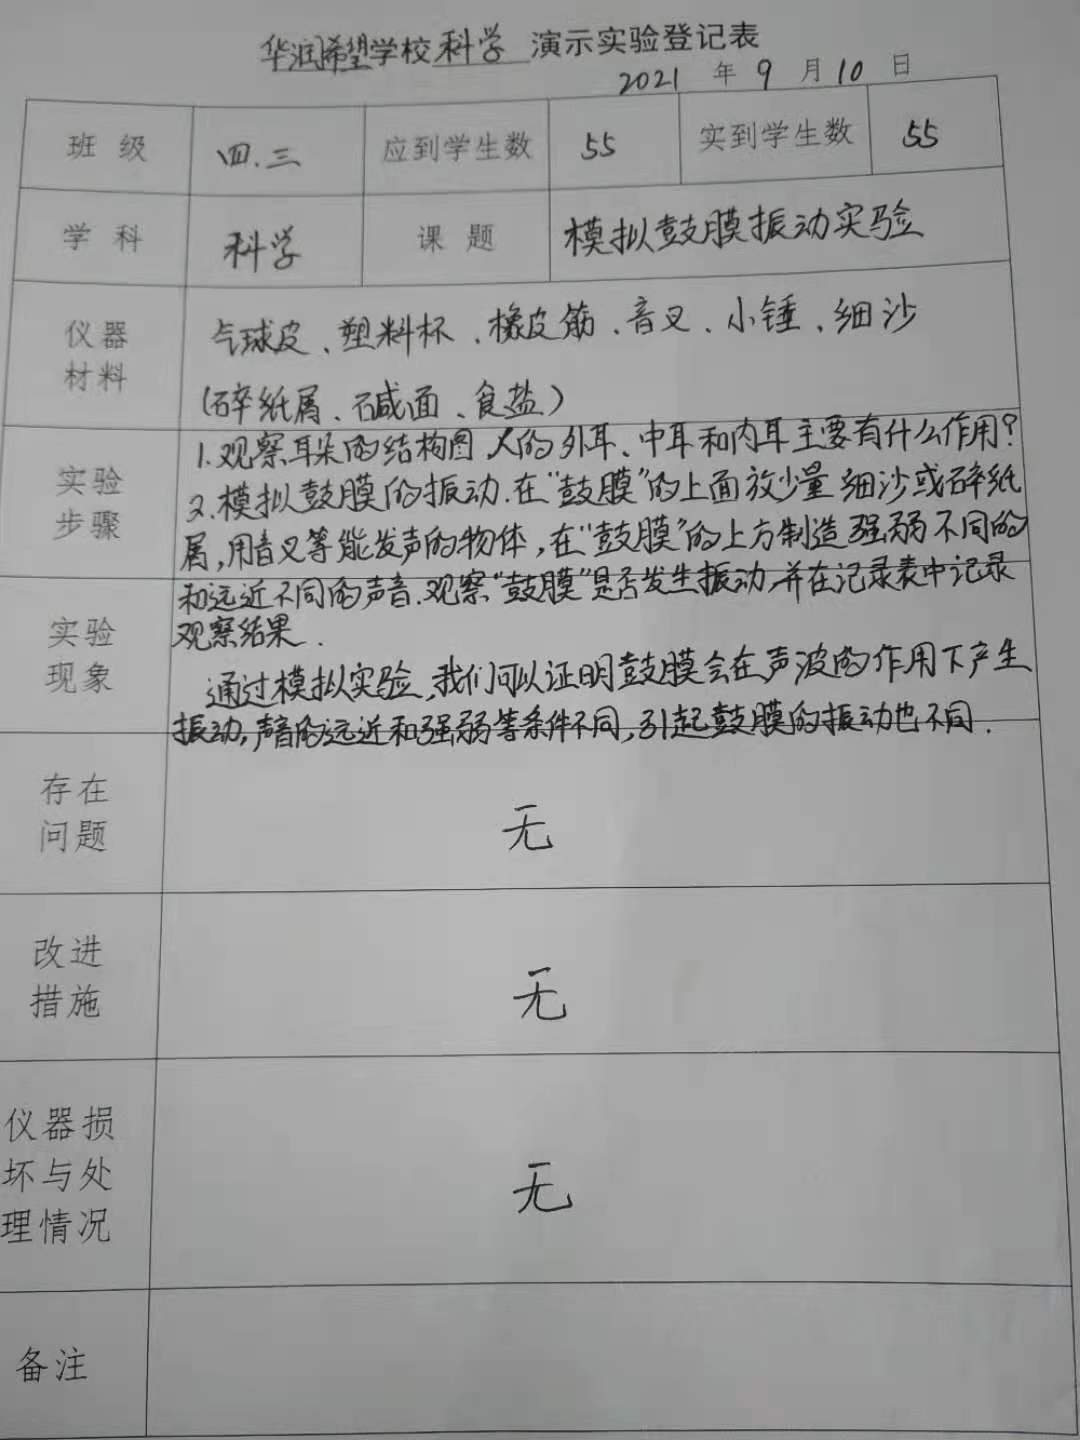 华润希望学校科学 演示实验登记表
2021 年 9 月 10 日
班级 四.三 应到学生数 55 实到学生数 55
学科 科学 课题 模拟鼓膜振动实验
仪器
材料
气球皮、塑料杯、橡皮筋、音叉、小锤、细沙
(碎纸屑、碱面、食盐)
实验
步骤
1.观察耳朵的结构图 人的外耳、中耳和内耳主要有什么作用?
2.模拟鼓膜的振动.在"鼓膜"的上面放少量细沙或碎纸
屑,用音叉等能发声的物体,在"鼓膜"的上方制造强弱不同的
和远近不同的声音.观察"鼓膜"是否发生振动,并在记录表中记录
观察结果.
实验
现象
通过模拟实验,我们可以证明鼓膜会在声波的作用下产生
振动,声音的远近和强弱等条件不同,引起鼓膜的振动也不同.
存在
问题
无
改进
措施
无
仪器损
坏与处
理情况
无
备注